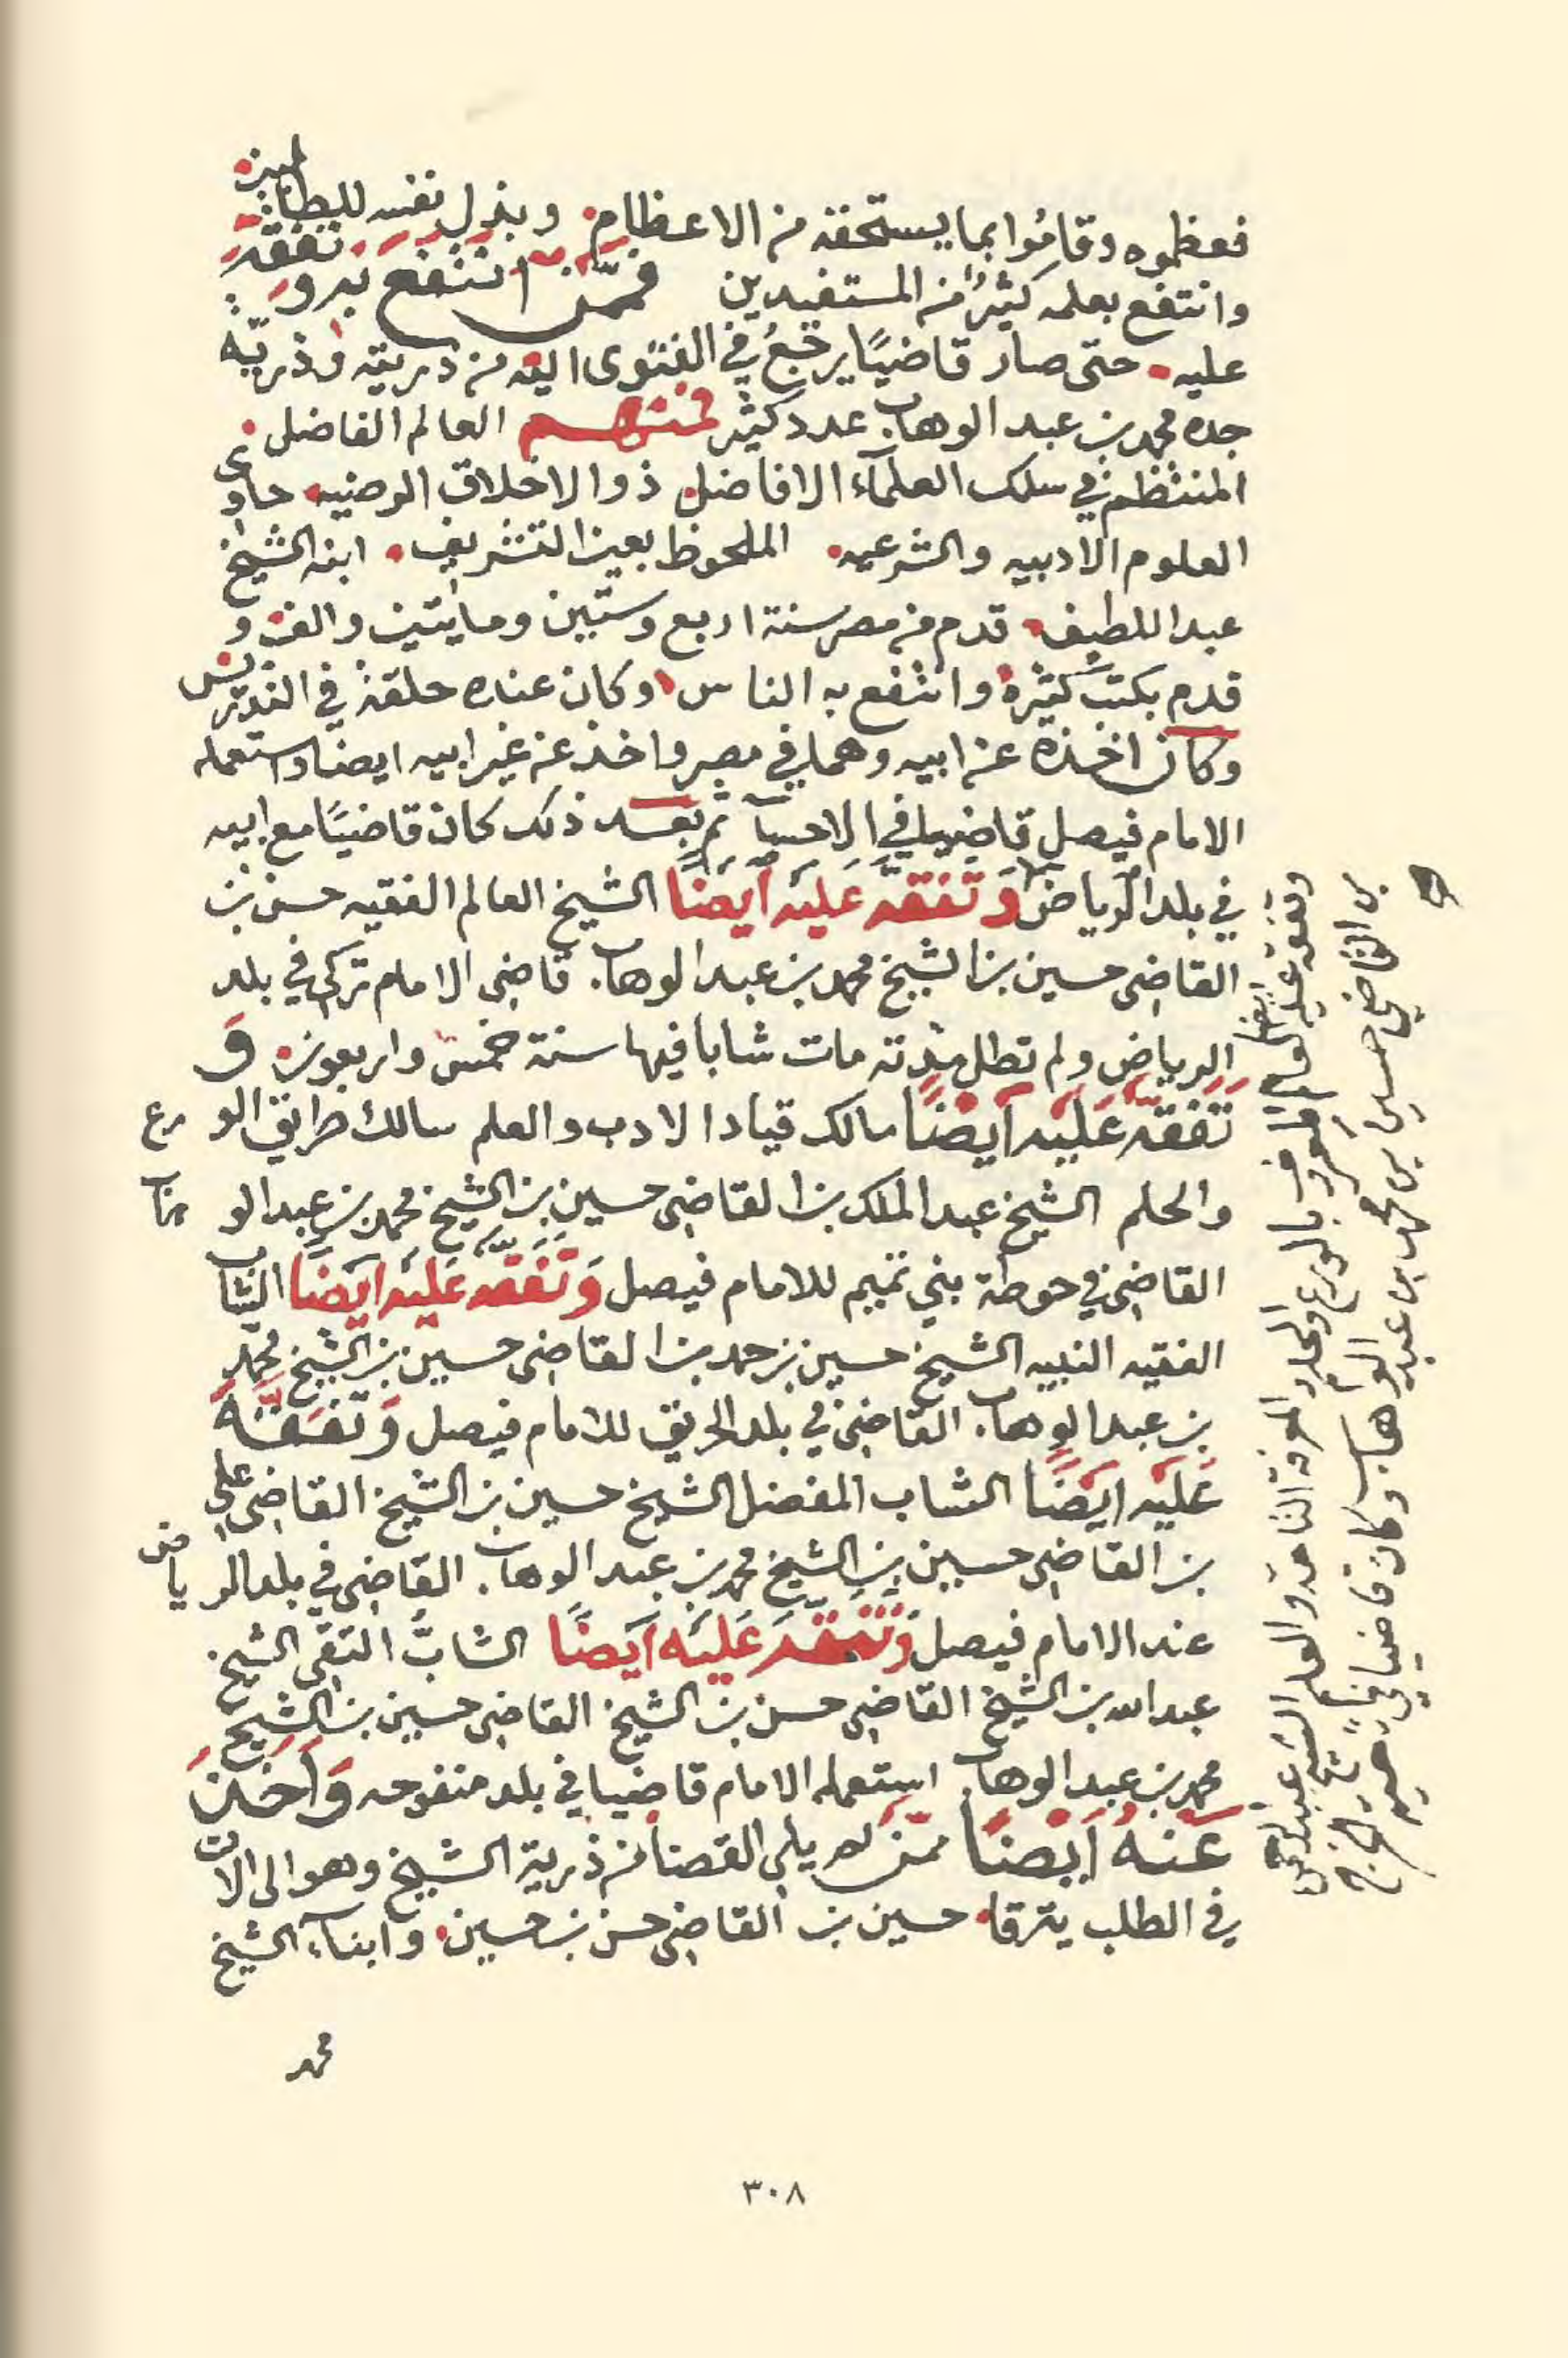 فعظموه وقاموا بما يستحقه من الاعظام. وبذل نفسه للطالبين
وانتفع بعلمه كثير من المستفيدين فممّن انتفع به وتفقه
عليه. حتى صار قاضيًا يرجعُ في الفتوى اليه من ذريته وذريّه
جده محمد بن عبد الوهاب. عدد كثير فمنهم العالم الفاضل.
المنتظم في سلك العلمآء الافاضل ذو الاخلاق الوضيه. حاوى
العلوم الادبيه والشرعيه. الملحوظ بعين التشريف. ابنه الشيخ
عبد اللطيف. قدم من مصر سنة اربع وستين ومايتين والف. و
قدم بكتب كثيرة وانتفع به الناس. وكان عنده حلقة في التدريس
وكان اخذه عن ابيه وهما في مصر واخذ عن غير ابيه ايضا واستعمله
الامام فيصل قاضيا في الاحسآ ثم بعد ذلك كان قاضيًا مع ابيه
في بلد الرياض وَتَفَقّهَ عَلَيْه اَيضًا الشيخ العالم الفقيه حسن بن
القاضي حسين بن الشيخ محمد بن عبد الوهاب. قاضى الامام تركى في بلد
الرياض ولم تطل مدته مات شابا فيها سنة خمس واربعون. وَ
تَفَقّهَ عَلَيْه اَيضًا مالك قياد الادب والعلم سالك طرايق الورع
والحلم الشيخ عبد الملك بن القاضى حسين بن الشيخ محمد بن عبد الوهاب
القاضى في حوطة بني تميم للامام فيصل وَتَفَقّهَ عَلَيْه اَيضًا الشاب
الفقيه النبيه الشيخ حسين بن حمد بن القاضى حسين بن الشيخ محمد
بن عبد الوهاب. القاضى في بلد الحريق للامام فيصل وَتَفَقّهَ
عَلَيْه اَيضًا الشاب المفضل الشيخ حسين بن الشيخ القاضى علي
بن القاضى حسين بن الشيخ محمد بن عبد الوهاب. القاضى في بلد الرياض
عند الامام فيصل وَتَفَقّهَ عَلَيْه اَيضًا الشابّ التقى الشيخ
عبد الله بن الشيخ القاضى حسن بن الشيخ القاضى حسين بن الشيخ
محمد بن عبد الوهاب استعمله الامام قاضيا في بلد منفوحه وَاَخَذَ
عَنهُ اَيضًا ممن لم يلي القضا من ذرية الشيخ وهو الى الان
في الطلب يترقا. حسين بن القاضى حسن بن حسين. وابناء الشيخ
محمد
وتفقه عليه ايضا العالم المعروف بالورع والحلم والمعرفة التامة والعلم الشيخ عبد الرحمن
بن القاضي حسين بن محمد بن عبد الوهاب وكان قاضيا في ناحية الخرج
صح
٣٠٨